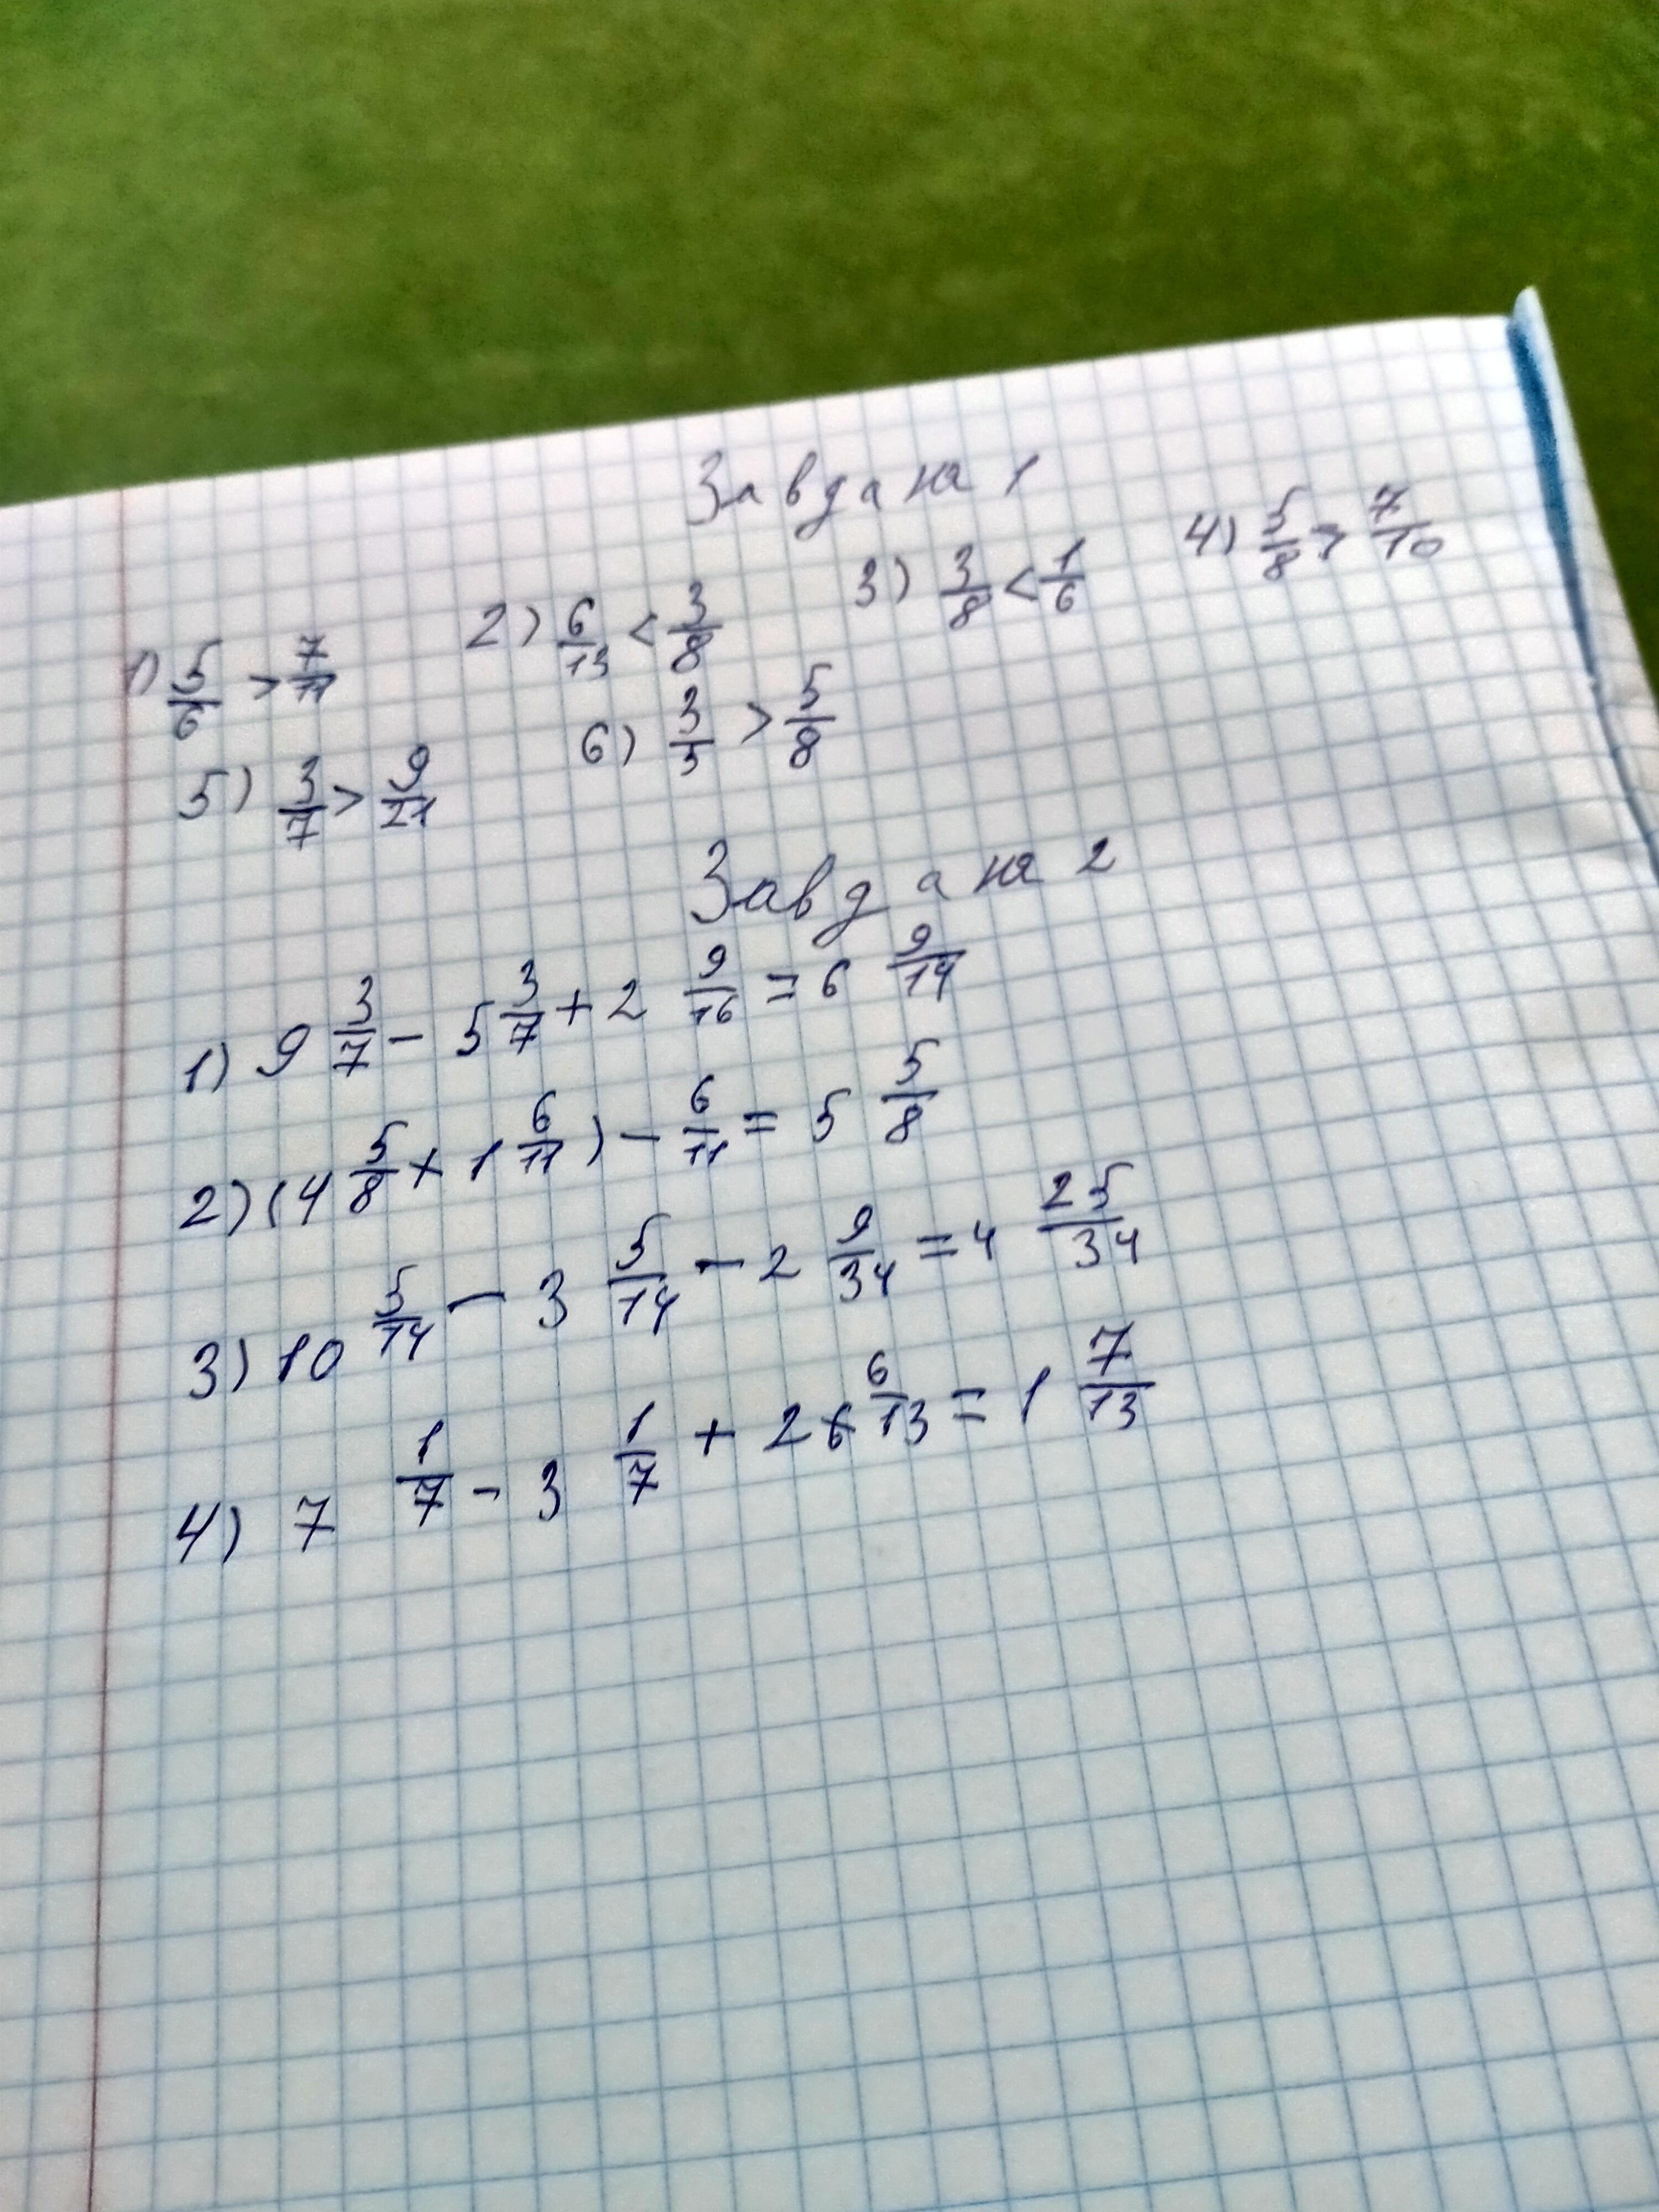 Завдана 1
1) 5/6 > 7/11 2) 6/13 < 3/8 3) 3/8 < 1/6 4) 5/8 > 7/10
5) 3/7 > 9/21 6) 3/5 > 5/8
Завдана 2
1) 9 3/7 - 5 3/7 + 2 9/16 = 6 9/14
2) (4 5/8 + 1 6/11) - 6/11 = 5 5/8
3) 10 5/14 - 3 5/14 - 2 9/34 = 4 25/34
4) 7 1/7 - 3 1/7 + 2 6/13 = 1 7/13